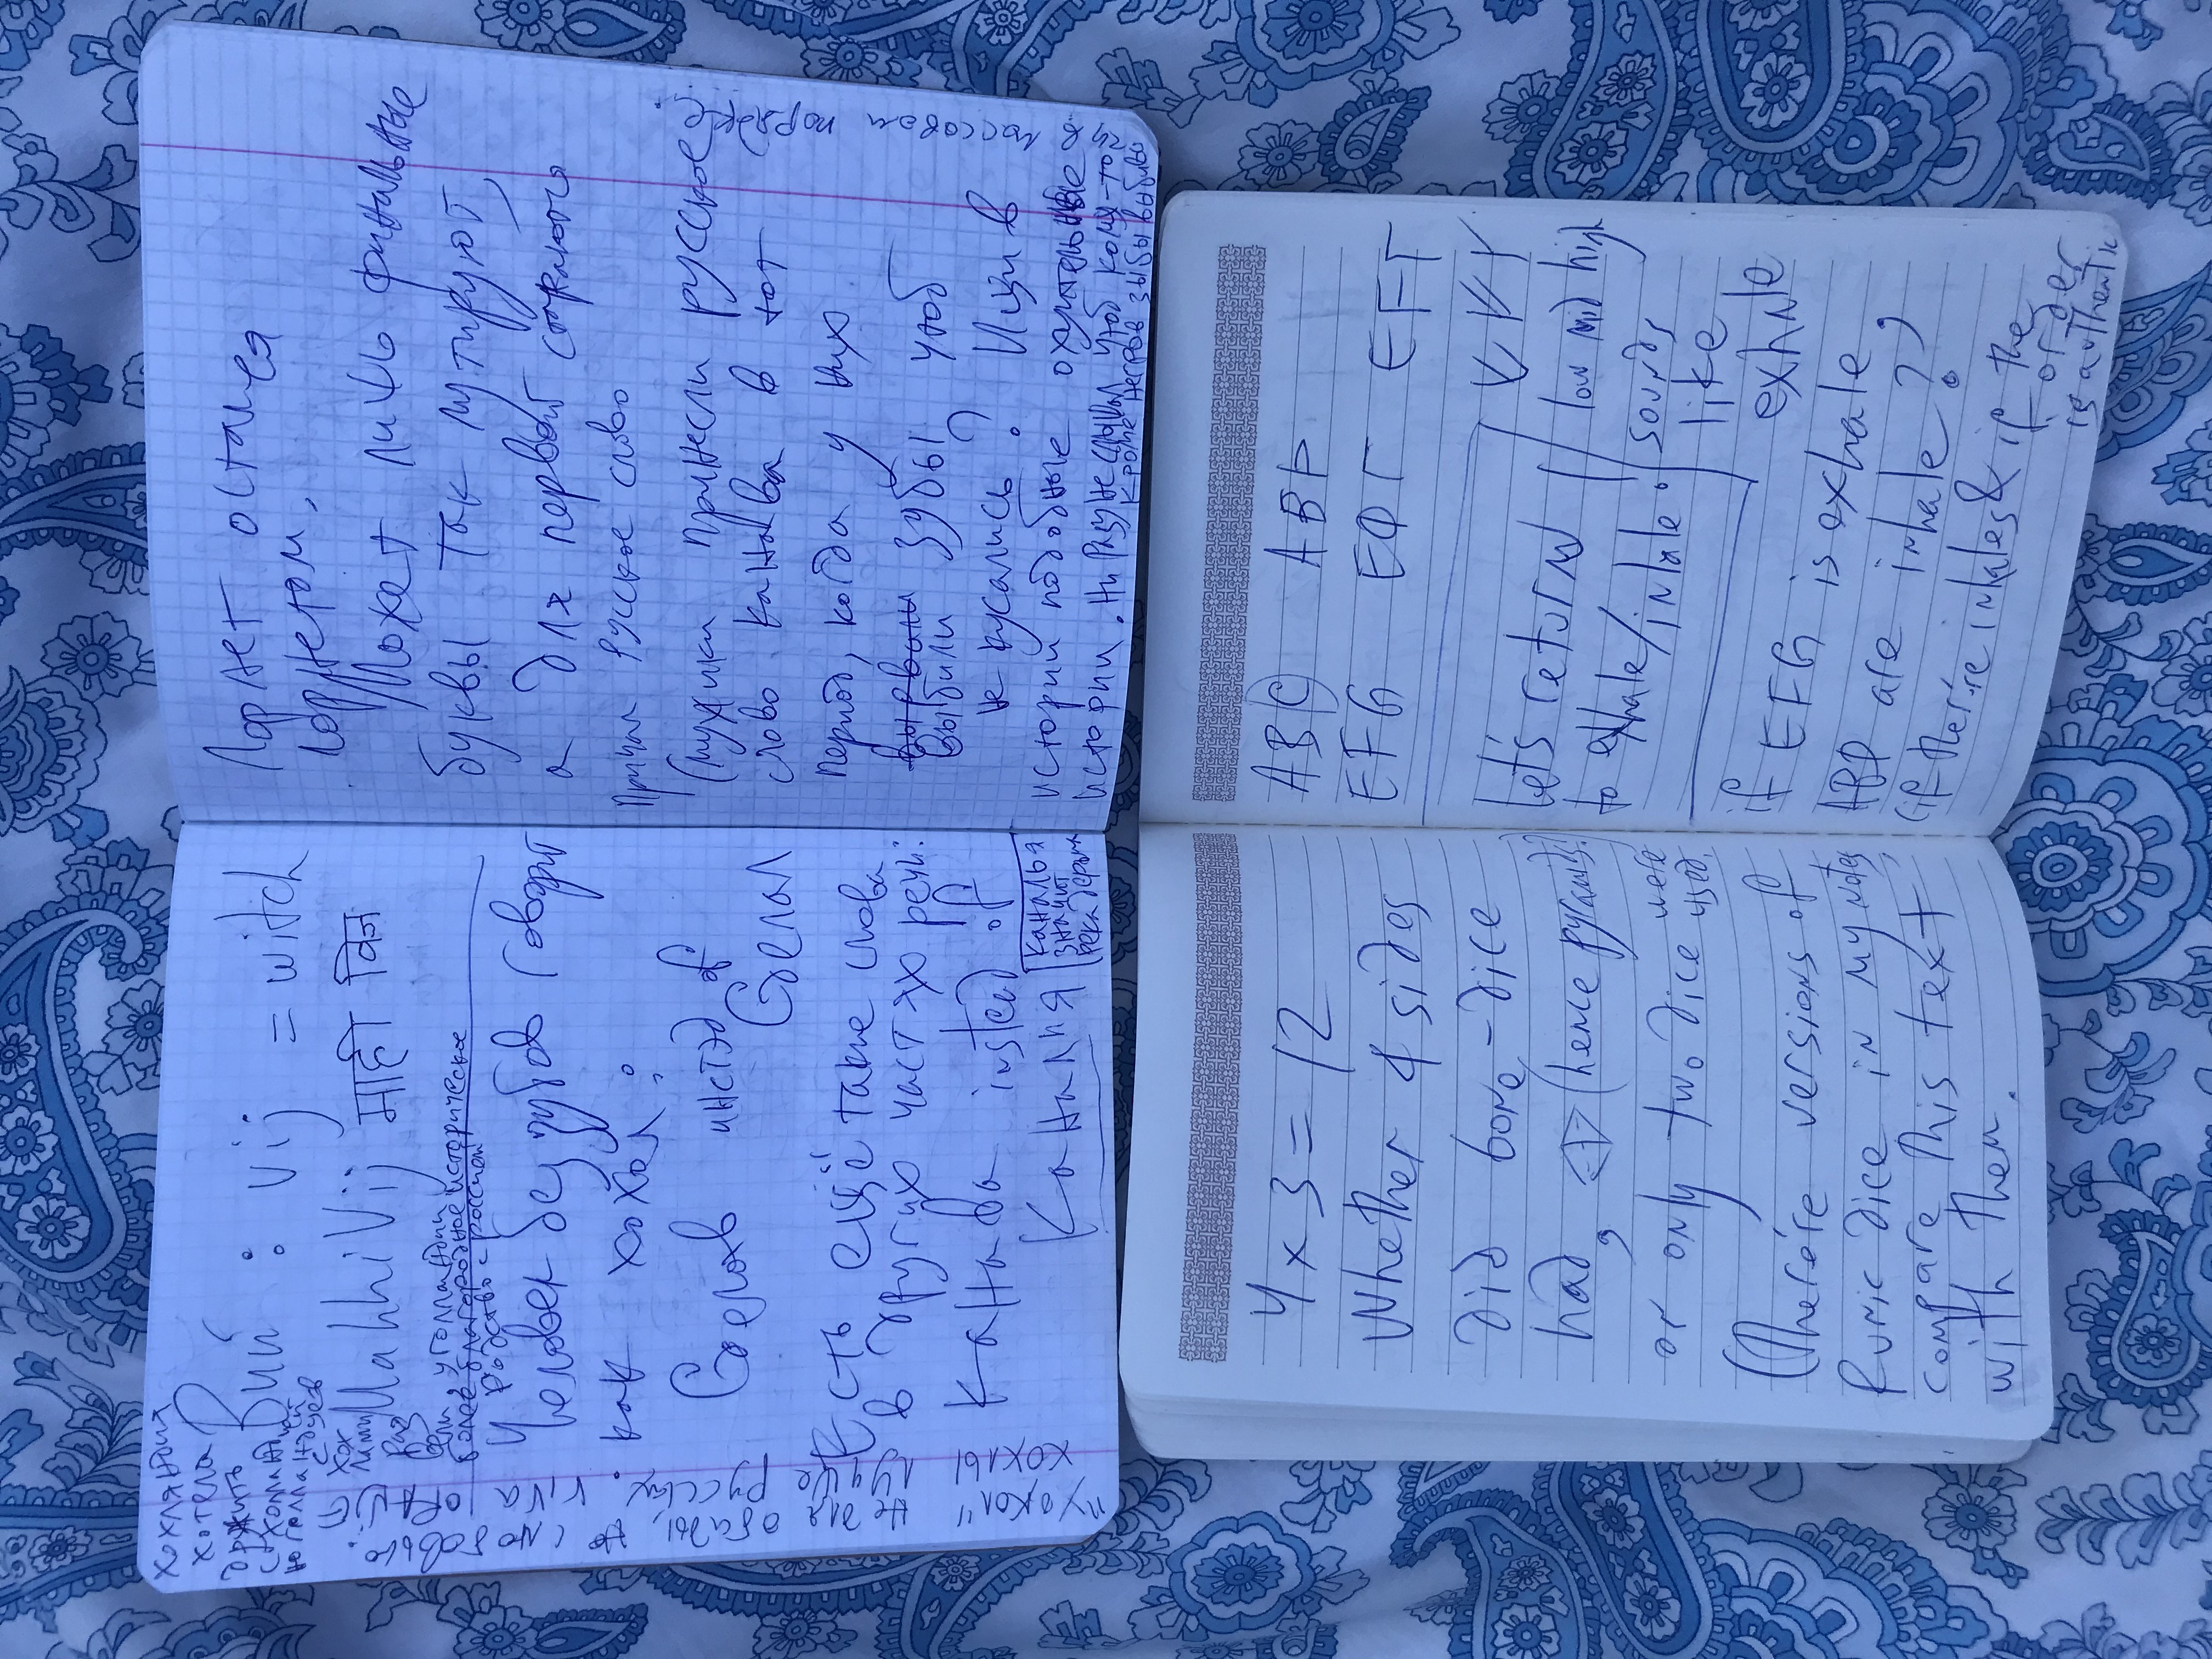 хохляндия
хотела
дружить
с холландией
но голландцев
с
хох
лами
раз
вели, у голландии
более благородное историческое
родство с россией
Вий : vij = witch
Mahhi Vij माही विज
Человек без зубов говорит
как хохол :
Сделав инстэд of
Сделал
Есть ещё такие слова
в других частях речи:
Канава instead of
Каналья
каналья
значит
река дерьма
"хохол" не для обиды, но с любовью.
хохлы лучше русских. viva lORANjE
Горнет остался
горнетом,
Может лишь финальные
буквы так мутируют,
а для первой стараются
Причал русское слово
(мужики принесли русское
слово канава в тот
период, когда у них
вырвали
выбили зубы чтоб
не кусались? Ищи в
истории подобные охуительные
истории. Ни разу не слышал чтоб кому-то
кроме негров зыбы выбивали
в массовом порядке.
4 x 3 = 12
Whether 4 sides
did bone-dice
had, (hence pyramids?)
or only two dice were
used.
(There're versions of
Runic dice in my notes,
compare this text
with them.
ABC ABÞ
EFG ЕФГ EFΓ
Let's return
to exhale/inhale.
low mid high
sounds
like
exhale
if EFG is exhale,
ABD are inhale?
(if there're inhales & if the
order
is authentic